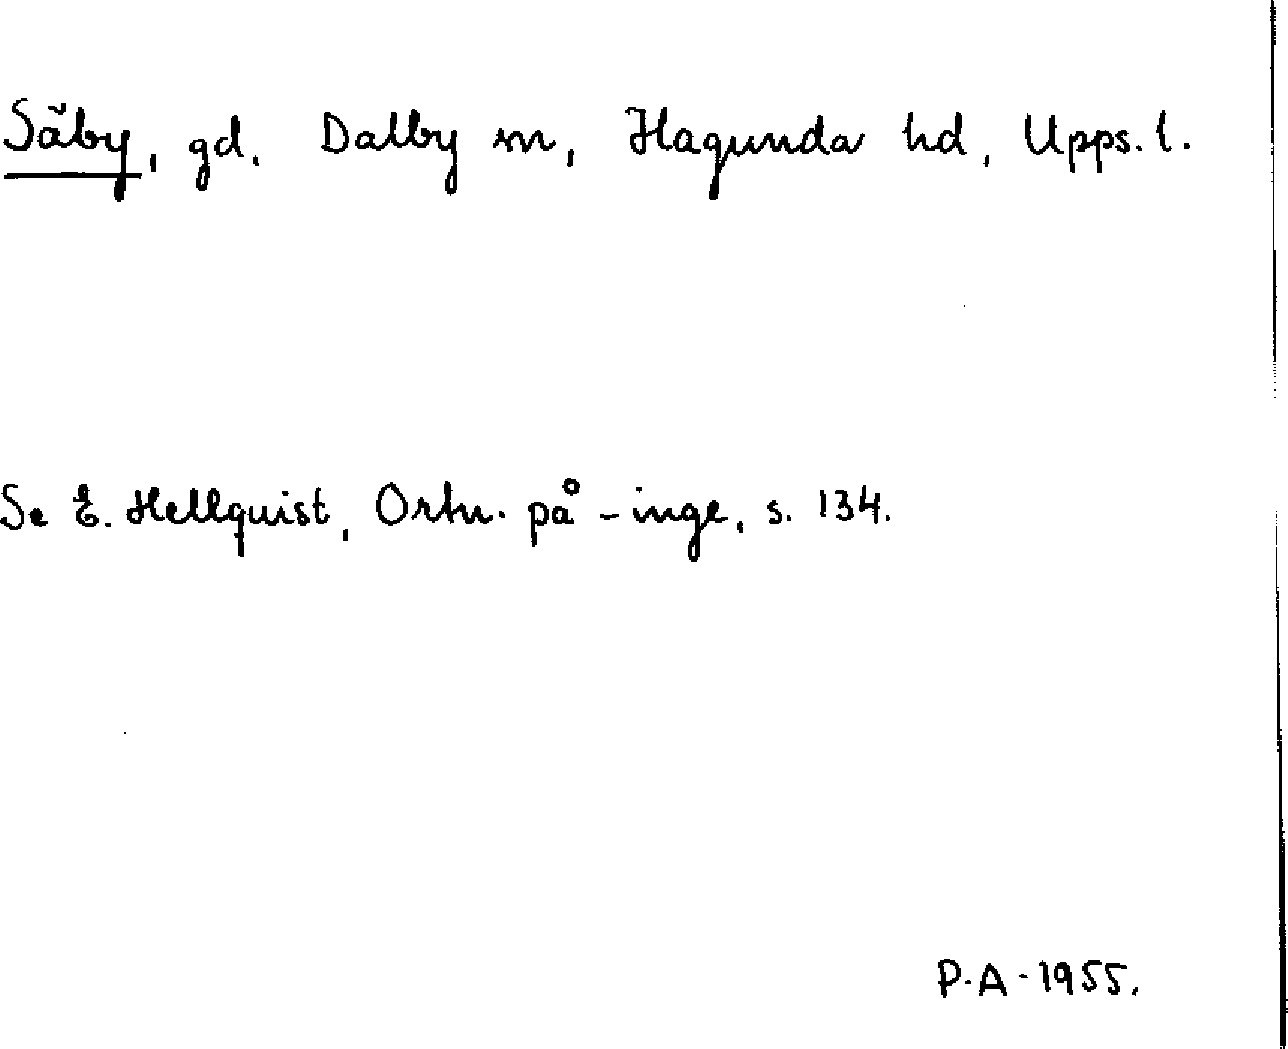 Säby, gd. Dalby sn, Hagunda hd, Upps. l.
Se E. Hellquist, Ortn. på -inge, s. 134.
P.A. 1955.